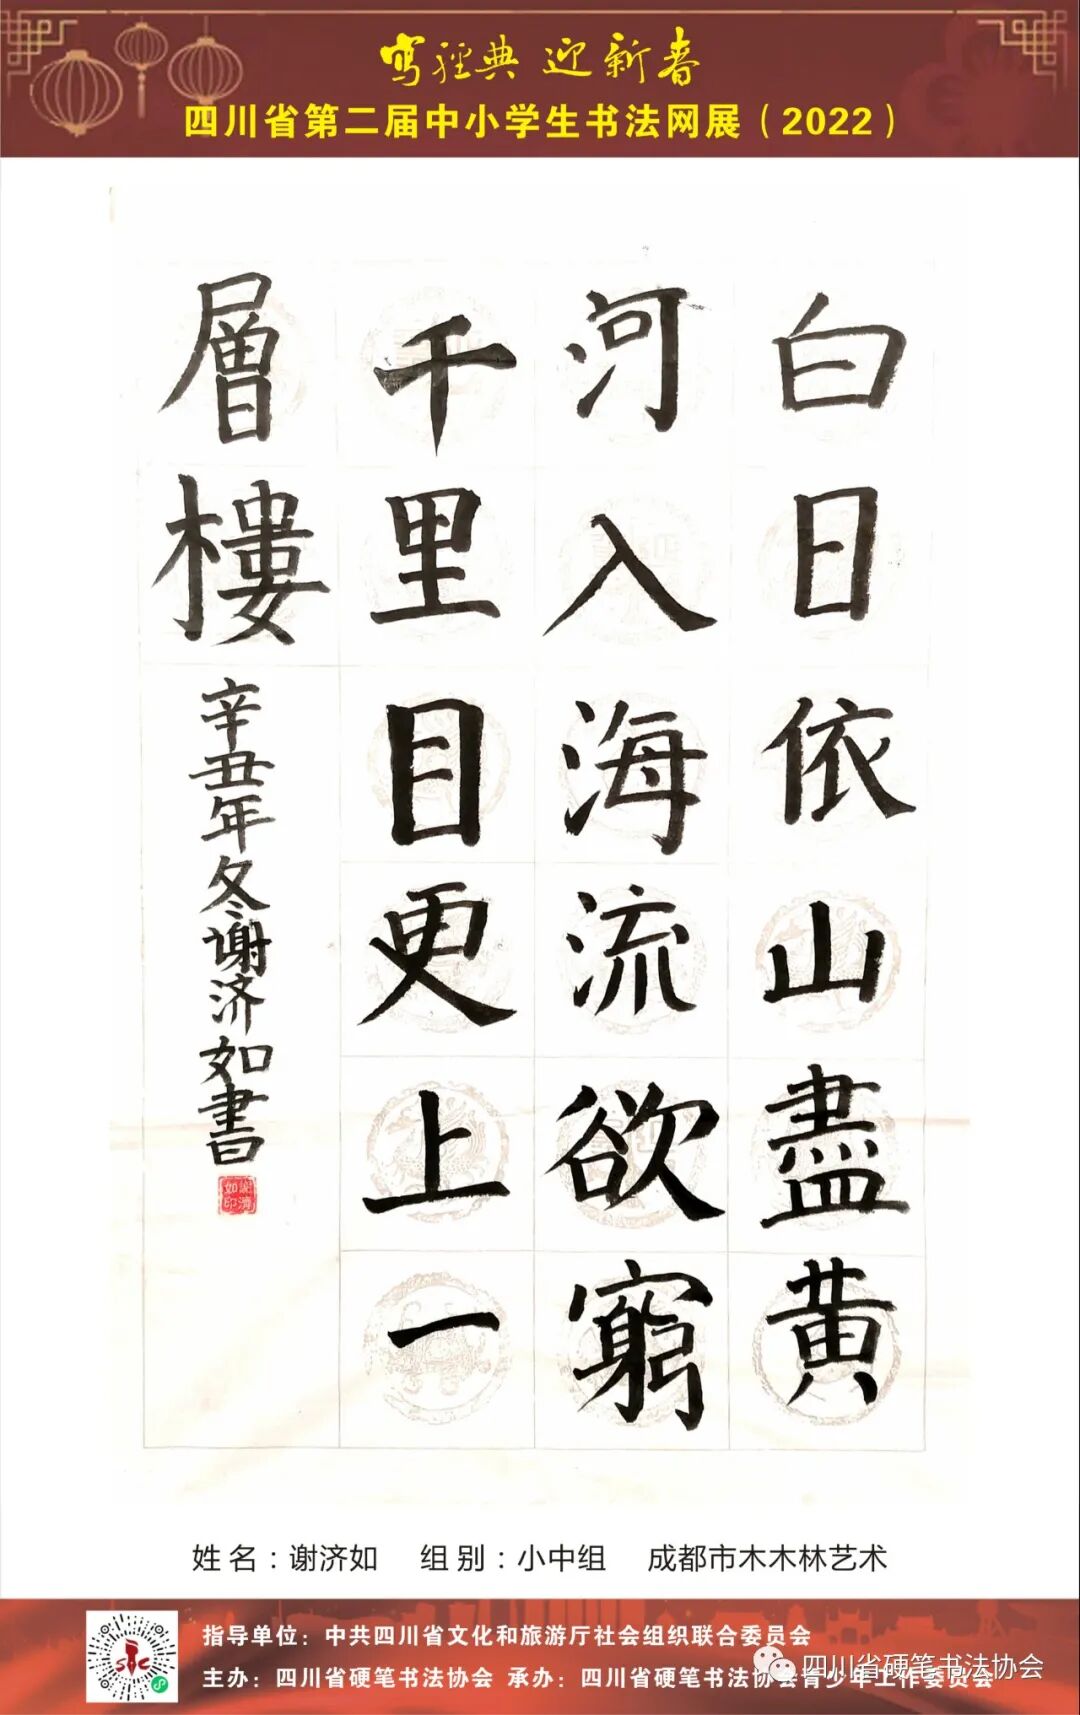 写经典 迎新春
四川省第二届中小学生书法网展（2022）
白日依山盡黄
河入海流欲窮
千里目更上一
層樓
辛丑年冬谢济如書
谢濟如印
姓名：谢济如 组别：小中组 成都市木木林艺术
指导单位：中共四川省文化和旅游厅社会组织联合委员会
主办：四川省硬笔书法协会 承办：四川省硬笔书法协会青少年工作委员会
四川省硬笔书法协会